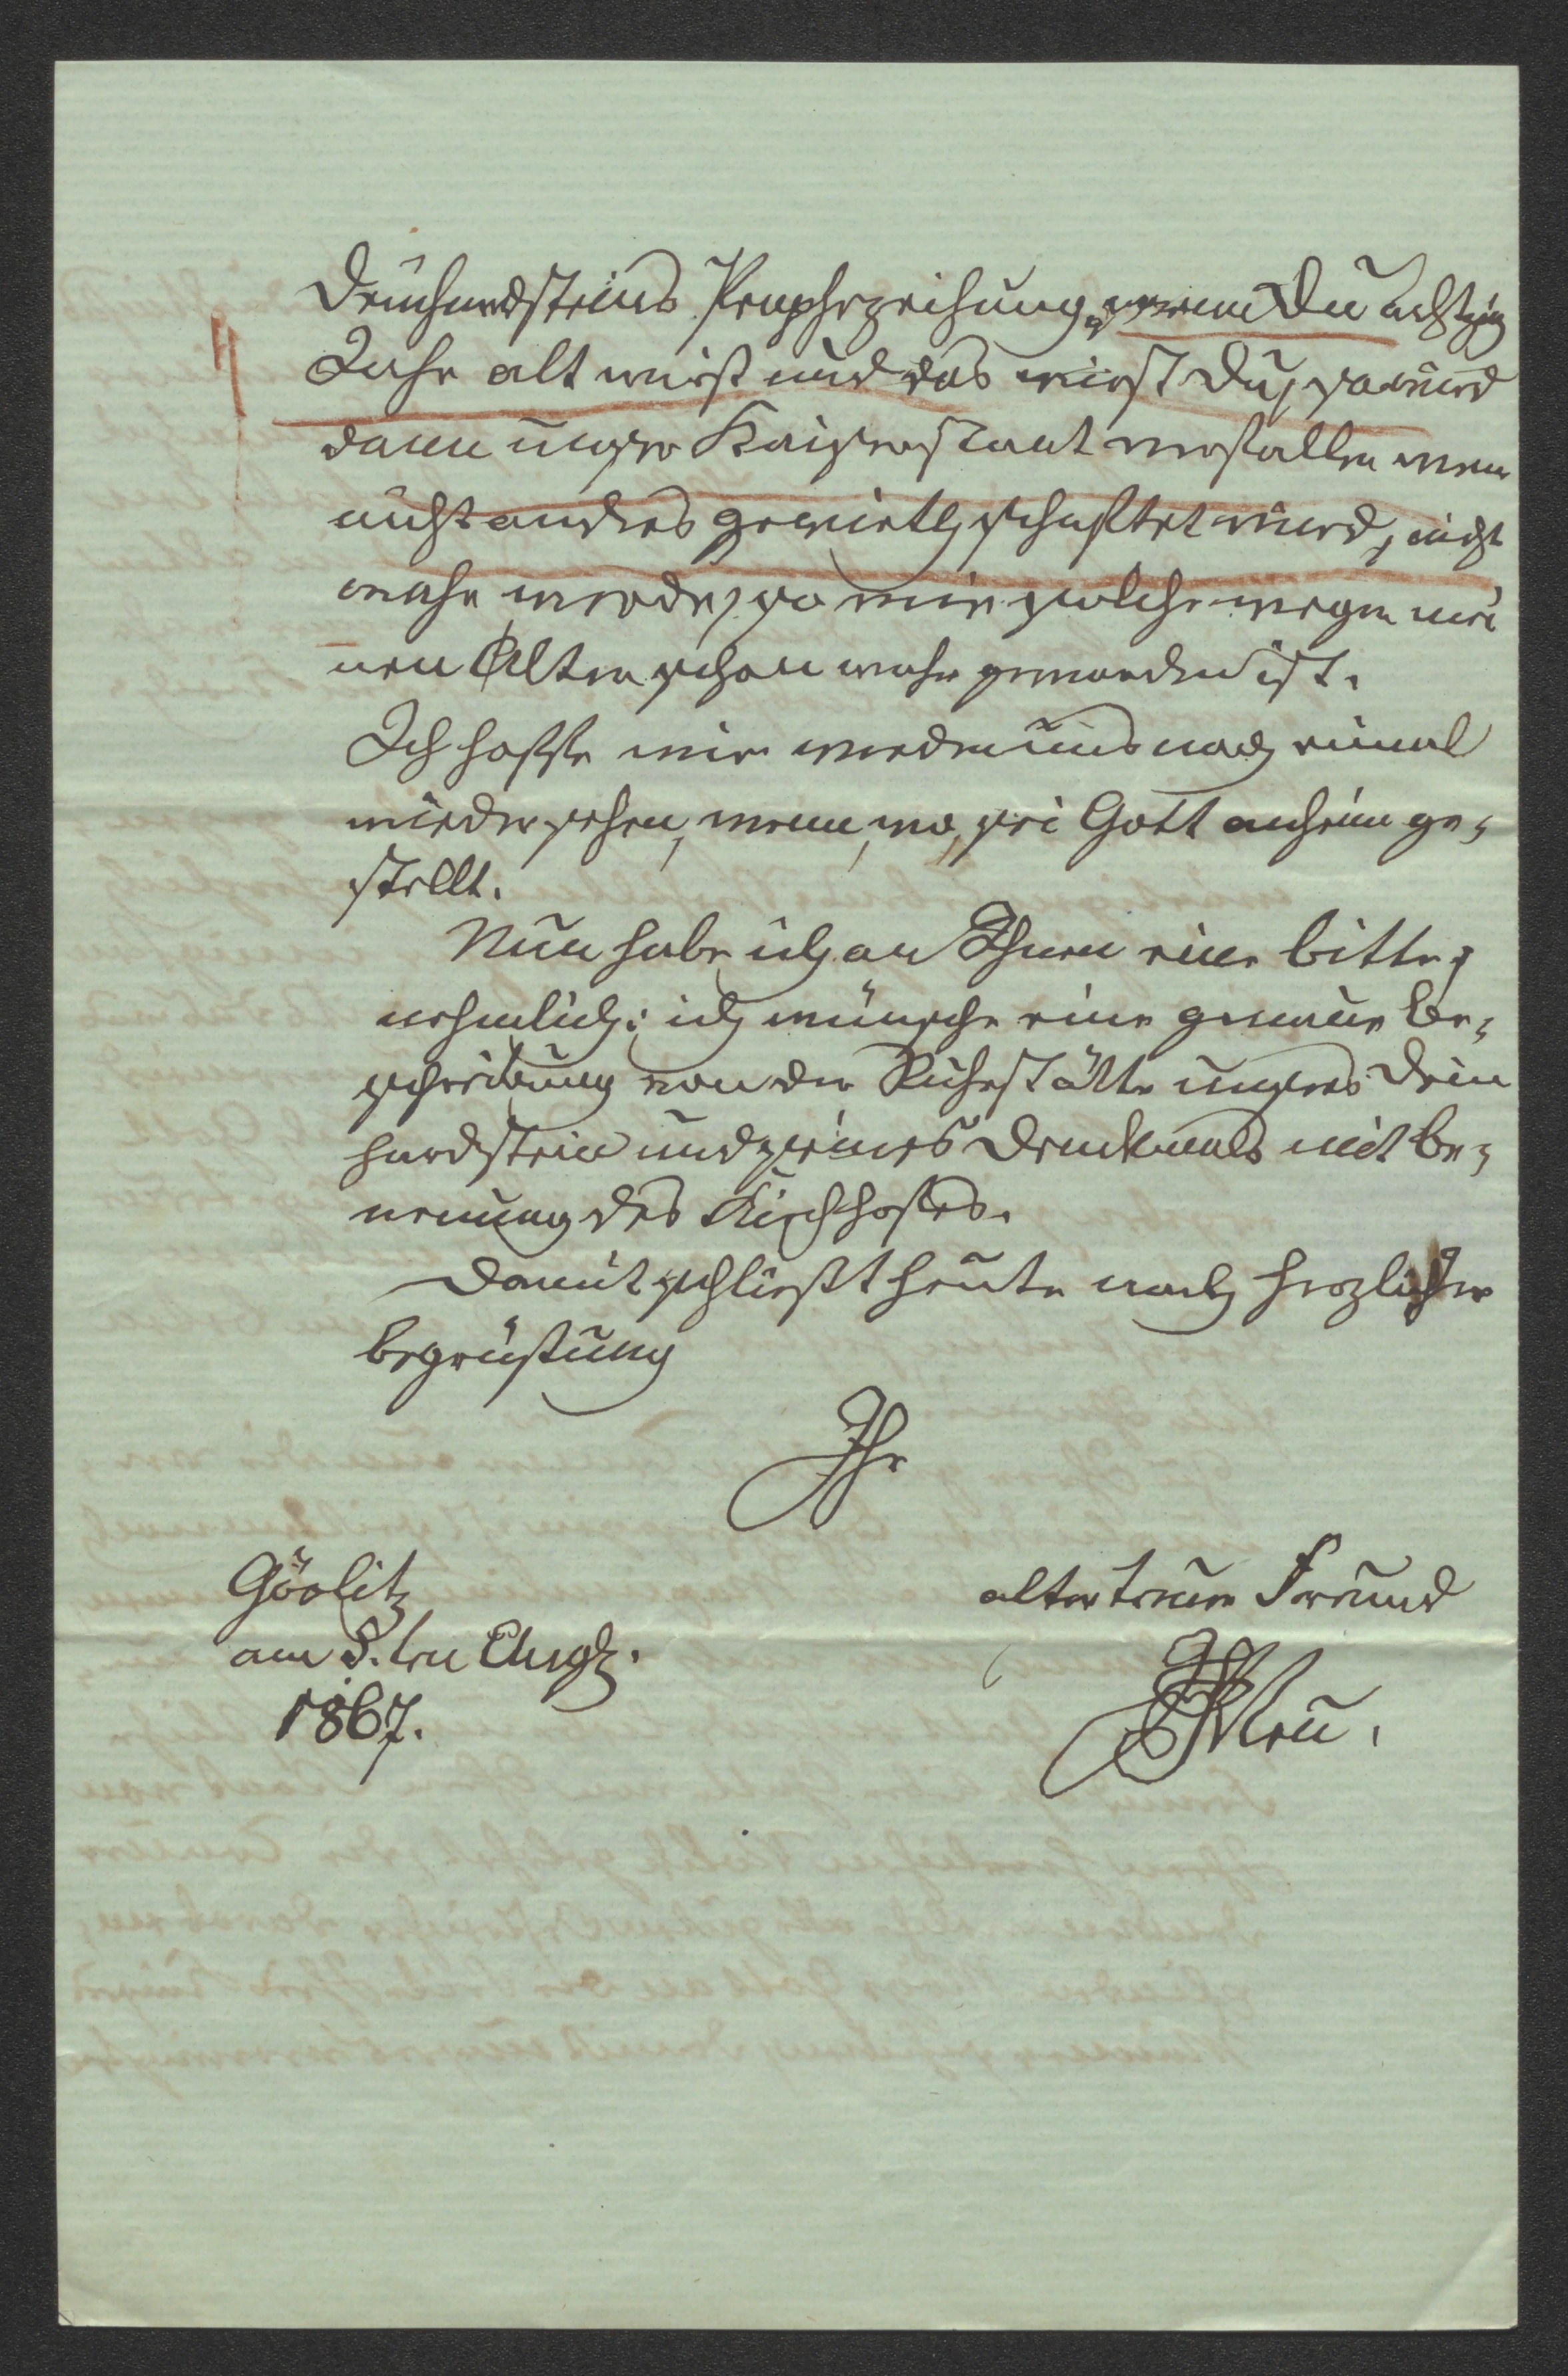 Deinhardsteins Prophezeihung, wenn Du achtzig
Jahr alt wirst und das wirst Du, so wird
dann unser Kaiserstaat verfallen wenn
nicht anders gewirthschaftet wird, nicht
wahr werde, so wie solche wegen mei
nen Alter schon wahr geworden ist.
Ich hoffe wir werden uns noch einmal
wiedersehen, wenn, wo, sei Gott anheim ge-
stellt.
Nun habe ich an Ihnen eine bitte,
nehmlich: ich wünsche eine genaue be-
schreibung von der Ruhestätte unseres Dein
hardstein und seines Denkmals mit be-
nennung des Kirchhofes.
Damit schließt heute nach herzlicher
begrüßung
Ihr
alter treuer Freund
Görlitz
am 8. ten Augs.
1867.